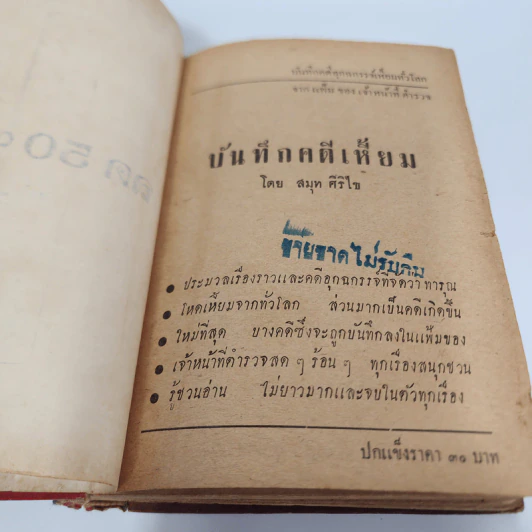 บันทึกคดีอุกฉกรรจ์เหี้ยมทั่วโลก
จากแฟ้ม ของ เจ้าหน้าที่ตำรวจ
บันทึกคดีเหี้ยม
โดย สมุท ศิริไข
ขายขาดไม่รับคืน
● ประมวลเรื่องราวและคดีอุกฉกรรจ์ที่จัดว่า ทารุณ
● โหดเหี้ยมจากทั่วโลก ส่วนมากเป็นคดีเกิดขึ้น
● ใหม่ที่สุด บางคดีซึ่งจะถูกบันทึกลงในแฟ้มของ
● เจ้าหน้าที่ตำรวจสด ๆ ร้อน ๆ ทุกเรื่องสนุกชวน
● รู้ชวนอ่าน ไม่ยาวมากและจบในตัวทุกเรื่อง
ปกแข็งราคา ๓๑ บาท